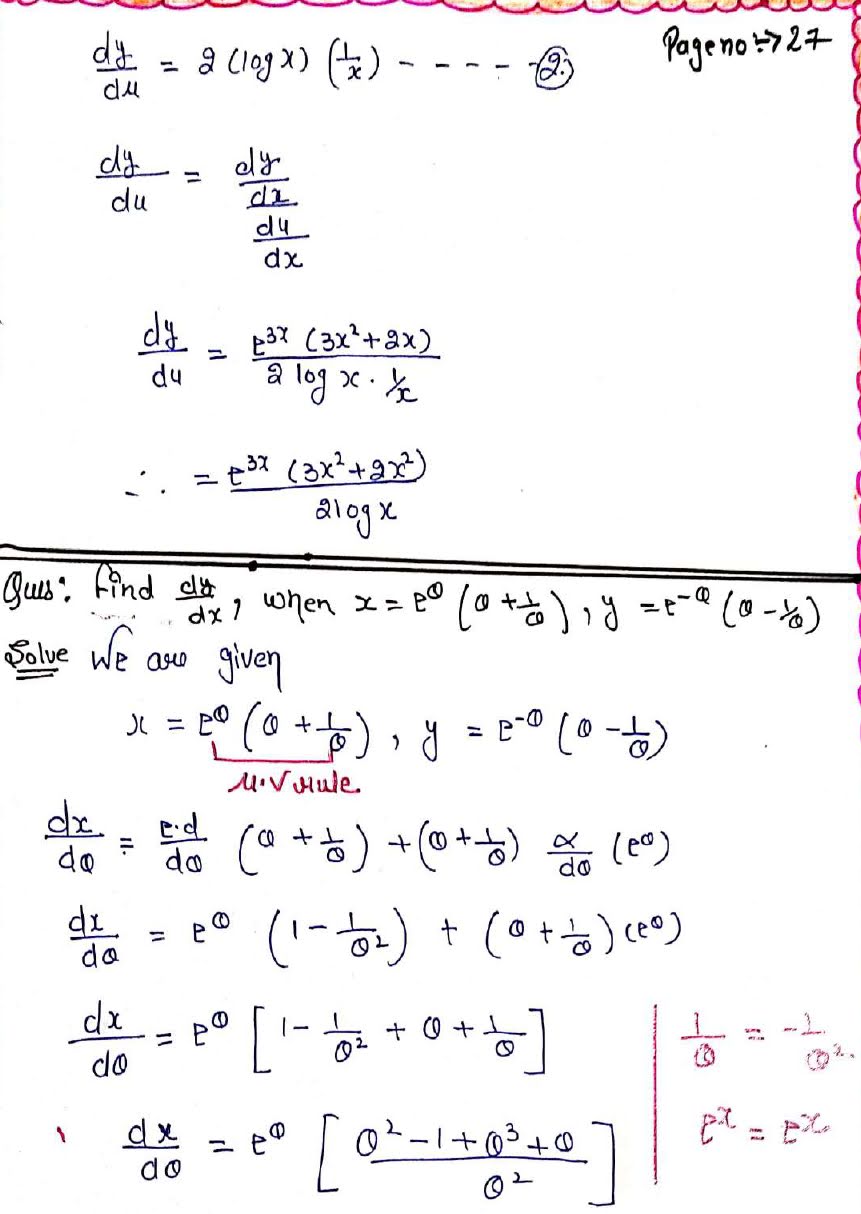 Page no :-> 27
dy/du = 2 (log x) (1/x) - - - - - ②
dy/du = (dy/dx)/(du/dx)
dy/du = e^3x (3x² + 2x) / 2 log x · 1/x
∴ = e^3x (3x² + 2x²) / 2 log x
Ques: find dy/dx, when x = e^θ (θ + 1/θ), y = e^-θ (θ - 1/θ)
Solve We are given
x = e^θ (θ + 1/θ), y = e^-θ (θ - 1/θ)
u.v rule.
dx/dθ = e·d/dθ (θ + 1/θ) + (θ + 1/θ) d/dθ (e^θ)
dx/dθ = e^θ (1 - 1/θ²) + (θ + 1/θ) (e^θ)
dx/dθ = e^θ [1 - 1/θ² + θ + 1/θ]
1/θ = -1/θ².
dx/dθ = e^θ [θ² - 1 + θ³ + θ / θ²]
e^x = e^x